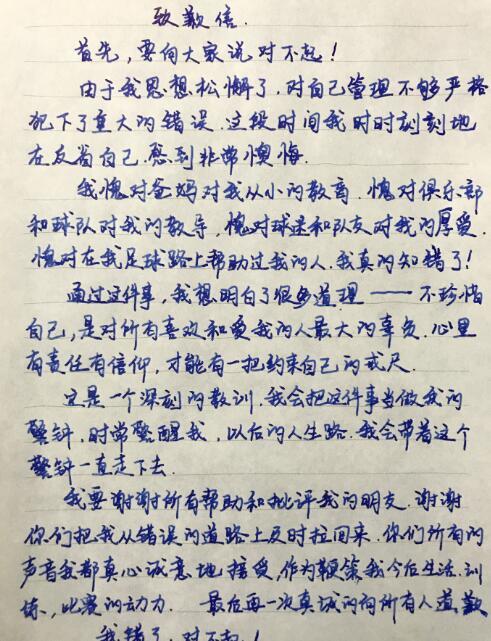 致歉信.
首先,要向大家说对不起!
由于我思想松懈了,对自己管理不够严格
犯下了重大的错误.这段时间我时时刻刻地
在反省自己.感到非常懊悔.
我愧对爸妈对我从小的教育.愧对俱乐部
和球队对我的教导,愧对球迷和队友对我的厚爱.
愧对在我足球路上帮助过我的人.我真的知错了!
通过这件事,我想明白了很多道理——不珍惜
自己,是对所有喜欢和爱我的人最大的辜负.心里
有责任有信仰,才能有一把约束自己的戒尺.
这是一个深刻的教训.我会把这件事当做我的
警钟,时常警醒我,以后的人生路.我会带着这个
警钟一直走下去.
我要谢谢所有帮助和批评我的朋友.谢谢
你们把我从错误的道路上及时拉回来.你们所有的
声音我都真心诚意地接受,作为鞭策我今后生活.训
练,比赛的动力.最后再一次真诚的向所有人道歉
我错了,对不起!